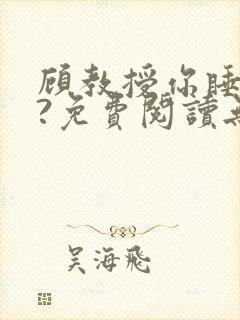 顧教授你睡
?免費閱讀
吴海飛